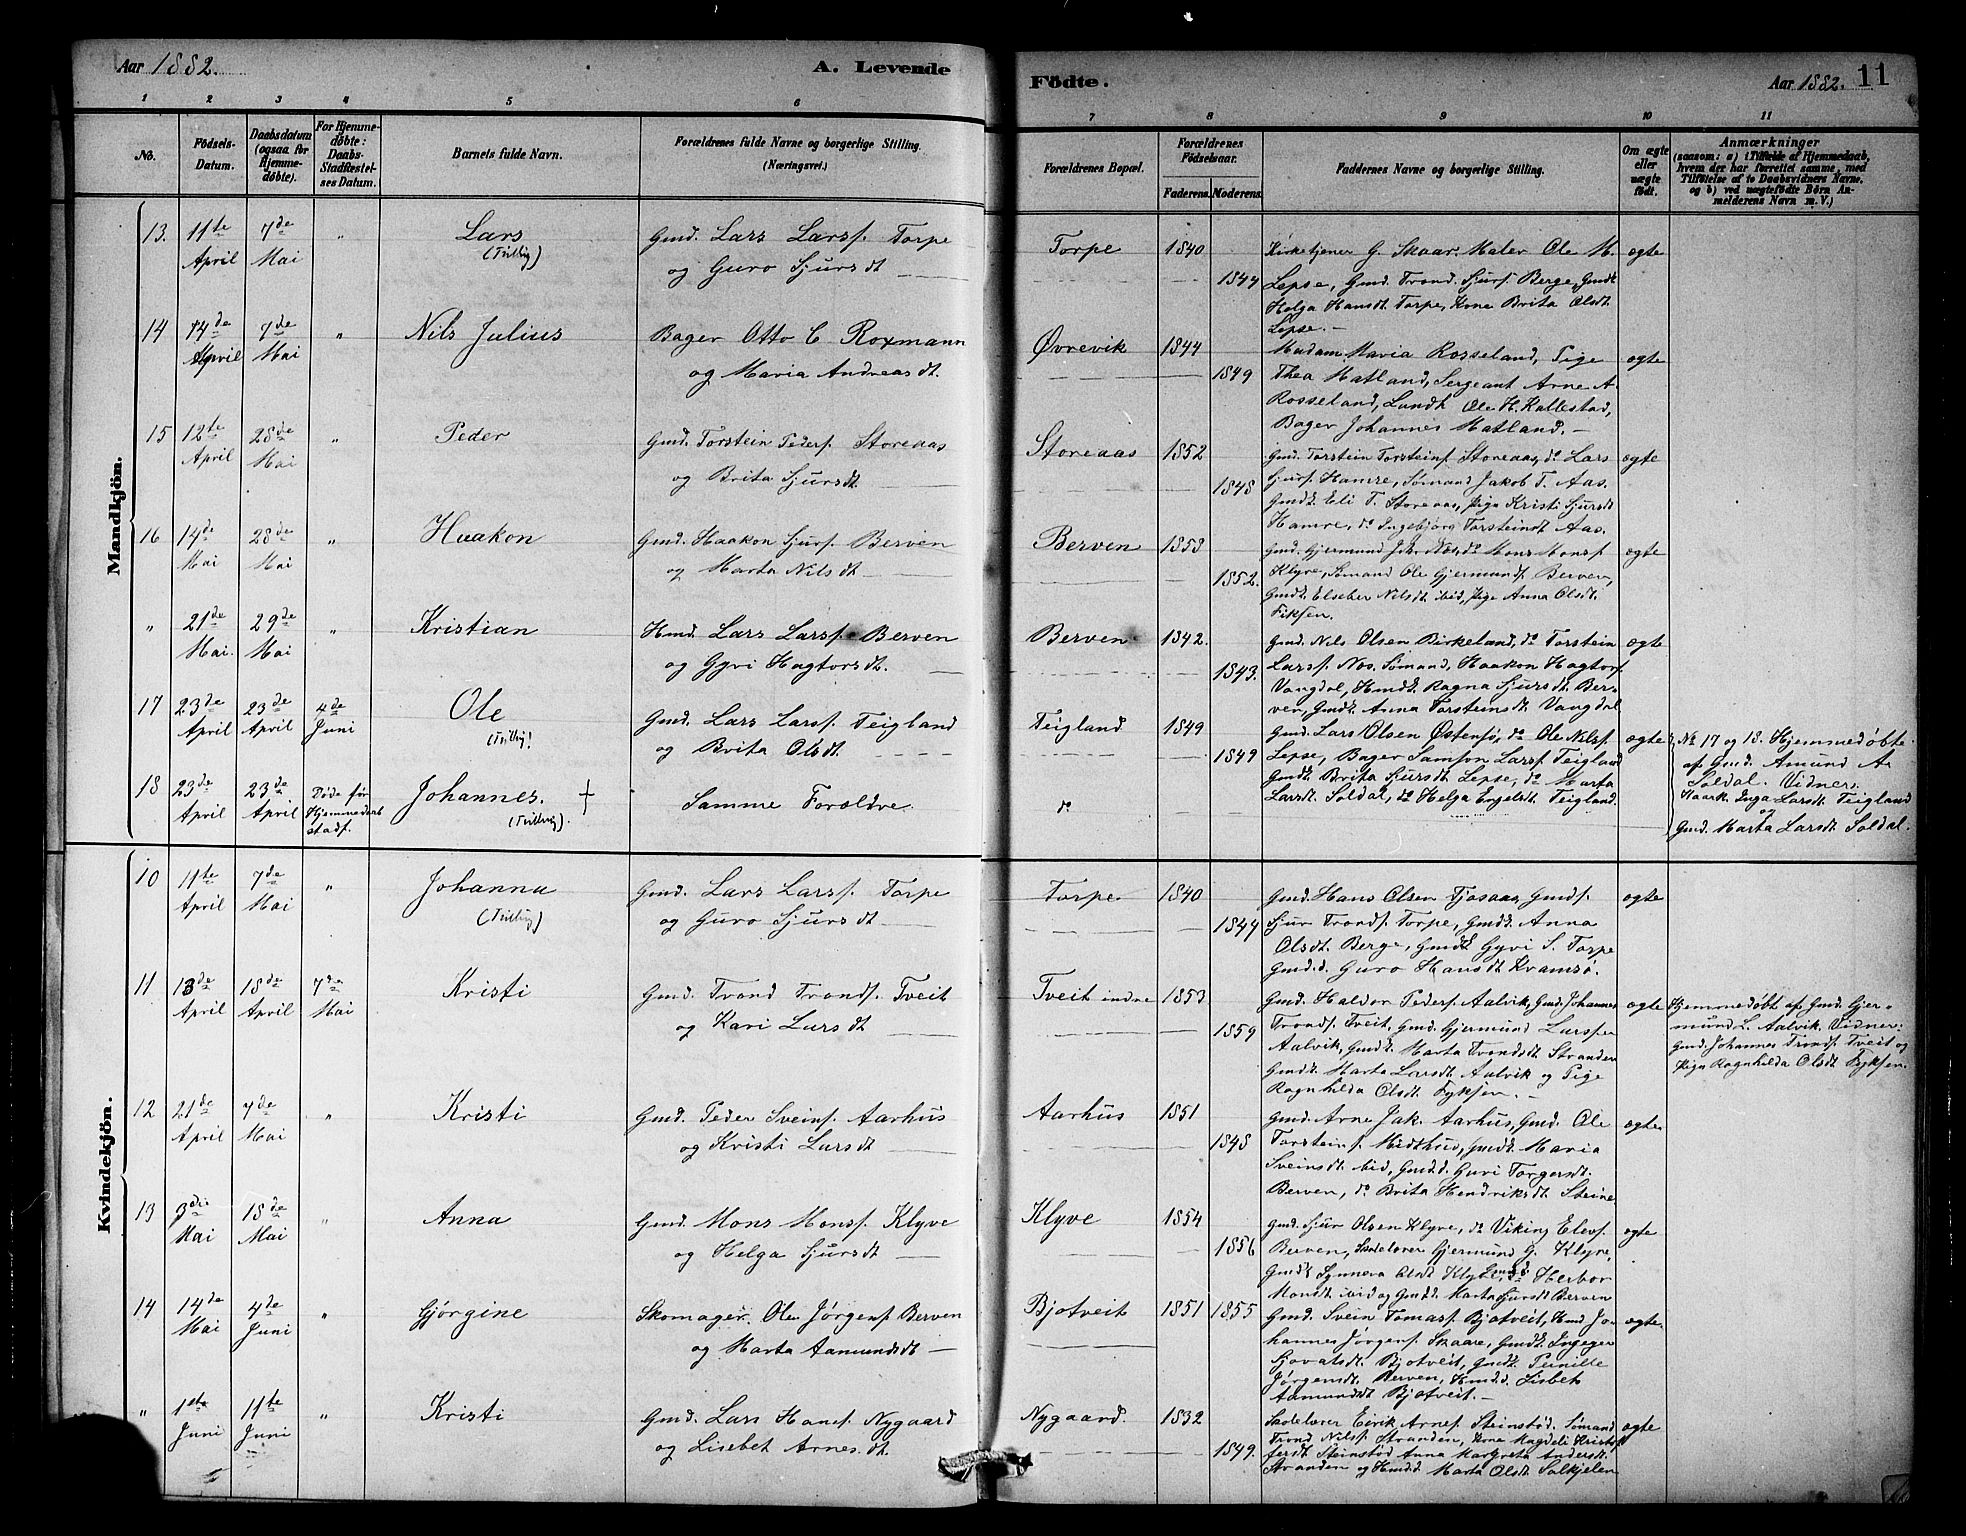 Aar 1882.
A. Levende
Födte.
Aar 1882.
11
1 2 3 4 5 6
7 8 9 10 11
No.
Födsels-Datum.
Daabsdatum (ogsaa for Hjemmedöbte).
For Hjemmedöbte: Daabs-Stadfæstelses Datum.
Barnets fulde Navn.
Forældrenes fulde Navne og borgerlige Stilling. (Næringsvei.)
Forældrenes Bopæl.
Forældrenes Födselsaar.
Faderens. Moderens.
Faddernes Navne og borgerlige Stilling.
Om ægte eller uægte födt.
Anmærkninger
(saasom: a) i Tilfælde af Hjemmedaab,
hvem der har forrettet samme, med
Tilföielse af to Daabsvidners Navne,
og b) ved uægtefödte Börn An-
melderens Navn m. V.)
Mandkjön.
13. 11te April 7de Mai " Lars (Tvilling)
Gmd. Lars Larsf. Torpe
og Guro Sjursdt
Torpe 1840 1844
Kirketjener G. Skaar, Maler Ole M.
Lepse, Gmd. Trond Sjursf. Berge, Gmdk
Helga Hansdt Torpe, Kone Brita Olsdt
Lepse.
ægte
14 14de April 7de Mai " Nils Julius
Bager Otto C Roxmann
og Maria Andreasdt.
Øvrevik 1844 1849
Madam Maria Rosseland, Pige
Thea Matland, Sergeant Arne A.
Rosseland, Lundk Ole H. Kallestad,
Bager Johannes Matland.
ægte
15 12te April 28de Mai " Peder
Gmd. Torstein Pedersf. Storeaas
og Brita Sjursdt.
Storeaas 1852 1848
Gmd. Torstein Torsteinsf. Storeaas, do Lars
Sjursf. Hamre, Sømand Jakob T. Aas.
Gmdk Eli T. Storeaas, Pige Kristi Sjursdt
Hamre, do Ingebjørg Torsteindt Aas.
ægte
16 14de Mai 28de Mai " Haakon
Gmd. Haakon Sjursf. Berven
og Marta Nilsdt
Berven 1853 1852.
Gmd. Gjermund Joh. Næs, do Mons Monsf
Klyve, Sømand Ole Gjermundsf. Berven,
Gmdk Elseber Nilsdt ibid, Pige Anna Olsdt.
Fiksen.
ægte
" 21de Mai. 29de Mai " Kristian
Hmd. Lars Larsf. Berven
og Gyvi Hagtorsdt.
Berven 1842. 1843.
Gmd. Nils Olsen Birkeland, do Torstein
Larsf. Nos. Sømand, Haakon Hagtorsf
Vangdal, Hmdk Ragna Sjursdt Ber-
ven, Gmdk Anna Torsteinsdt Vangdal
ægte
17 23de April 23de April 4de Juni Ole (Tvilling)
Gmd. Lars Larsf. Teigland
og Brita Olsdt.
Teigland 1849 1849
Gmd. Lars Olsen Østensø, do Ole Nilsf.
Lepse, Bager Samson Larsf Teigland
Gmdk Brita Sjursdt Lepse, do Marta
Larsdt Soldal, do Helga Engelsdt Teigland.
ægte
No 17 og 18. Hjemmedøbte
af Gmd. Amund A.
Soldal. Vidner:
Inga Larsdt Teigland
og
Gmd. Marta Larsdt Soldal.
18 23de April 23de April Døde før Hjemmedaab stadf. Johannes. † (Tvilling).
Samme Forældre.
do
Kvindekjön.
10 11te April 7de Mai " Johanna (Tvilling)
Gmd. Lars Larsf. Torpe
og Guro Sjursdt
Torpe 1840 1844
Gmd. Hans Olsen Tjosaas, Gmdsf.
Sjur Trondsf. Torpe, Gmdk Anna
Olsdt. Berge, Gmdk Gyvi S. Torpe
Gmd.d. Guro Hansdt Kramsø.
ægte
11 13de April 18de April 7de Mai Kristi
Gmd. Trond Trondsf. Tveit
og Kari Larsdt
Tveit indre 1853 1859
Gmd. Haldor Pedersf. Aalvik, Gmd. Johannes
Trondsf. Tveit, Gmd. Gjermund Larssen
Aalvik, Gmdk Marta Trondsdt Stranden
Gmdk Marta Larsdt Aalvik og Pige
Ragnhilda Olsdt Fyksen.
ægte
Hjemmedøbt af Gmd. Gjer-
mund L. Aalvik. Vidner:
Gmd. Johannes Trondsf. Tveit og
Pige Ragnhilda Olsdt Fyksen.
12 21de April 7de Mai " Kristi
Gmd. Peder Sveinsf. Aarhus
og Kristi Larsdt
Aarhus 1851 1848
Gmd. Arne Jak. Aarhus, Gmd. Ole
Torsteinsf. Midthus, Gmdk Maria
Sveinsdt ibid, Gmd.d. Guri Torgersdt.
Berven, do Brita Hendriksdt Steine
ægte
13 3die Mai 18de Mai " Anna
Gmd. Mons Monsf. Klyve
og Helga Sjursdt
Klyve 1854 1856
Gmd. Sjur Olsen Klyve, do Viking Elevsf.
Berven, Skolelærer Gjermund G. Klyve,
Gmdk Synneva Olsdt Klyve, Gmdd Herbor
Monsdt ibid og Gmdk Marta Sjursdt Berven
ægte
14 14de Mai 4de Juni " Gjørgine
Skomager. Ole Jørgensf Berven
og Marta Aamundsdt
Bjotveit 1851 1855
Gmd. Svein Tomasf. Bjotveit, Hmd Jo-
hannes Jørgensf. Skaare, Gmdk Ingeger
Sjovatsdt. Bjotveit, Gmdk Pernille
Jørgensdt. Berven, Hmd.d Lisbet
Aamundsdt Bjotveit.
ægte.
" 1ste Juni 11te Juni " Kristi
Gmd. Lars Hansf. Nygaard
og Lisebet Arnesdt.
Nygaard. 1832 1849.
Skolelærer Eirik Arnesf Steinstød, Sømand
Trond Nilsf Stranden, Kone Magdeli Kristo-
fersdt Steinstød Anna Margreta Andersdt.
Stranden og Hmdd Marta Olsdt Solkjelen
ægte